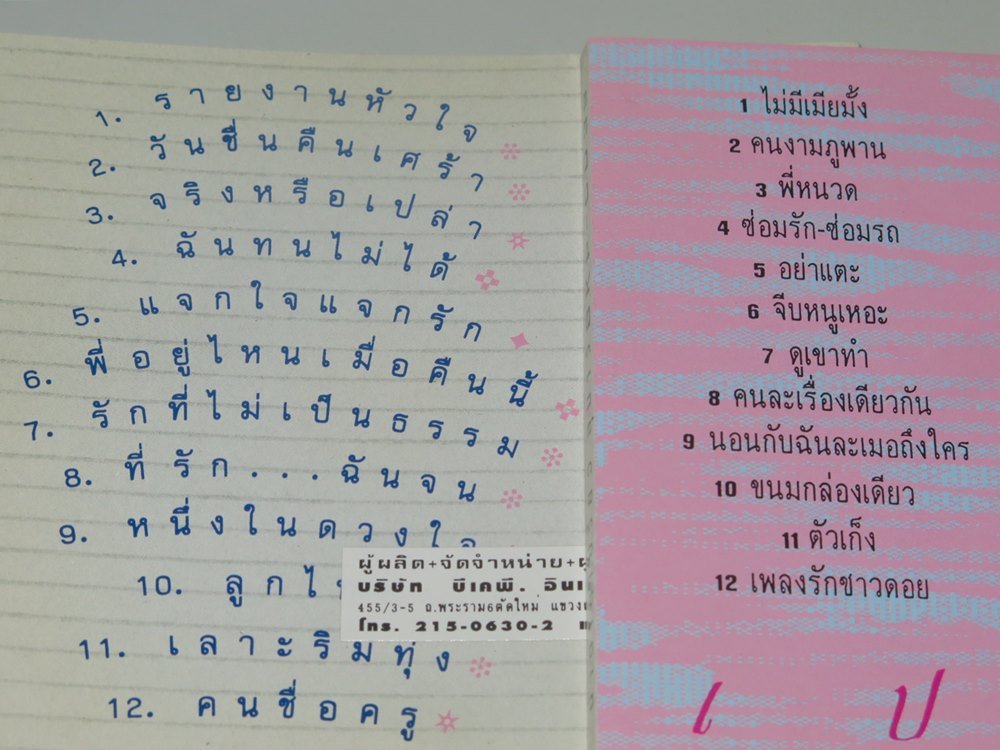 1. รายงานหัวใจ
2. วันชื่นคืนเศร้า
3. จริงหรือเปล่า
4. ฉันทนไม่ได้
5. แจกใจแจกรัก
6. พี่อยู่ไหนเมื่อคืนนี้
7. รักที่ไม่เป็นธรรม
8. ที่รัก...ฉันจน
9. หนึ่งในดวงใจ
10. ลูกไ
11. เลาะริมทุ่ง
12. คนชื่อครู
ผู้ผลิต+จัดจำหน่าย+
บริษัท บีเคพี. อินเ
455/3-5 ถ.พระราม6ตัดใหม่ แขวง
โทร. 215-0630-2
1 ไม่มีเมียมั้ง
2 คนงามภูพาน
3 พี่หนวด
4 ซ่อมรัก-ซ่อมรถ
5 อย่าแตะ
6 จีบหนูเหอะ
7 ดูเขาทำ
8 คนละเรื่องเดียวกัน
9 นอนกับฉันละเมอถึงใคร
10 ขนมกล่องเดียว
11 ตัวเก็ง
12 เพลงรักชาวดอย
เ ป